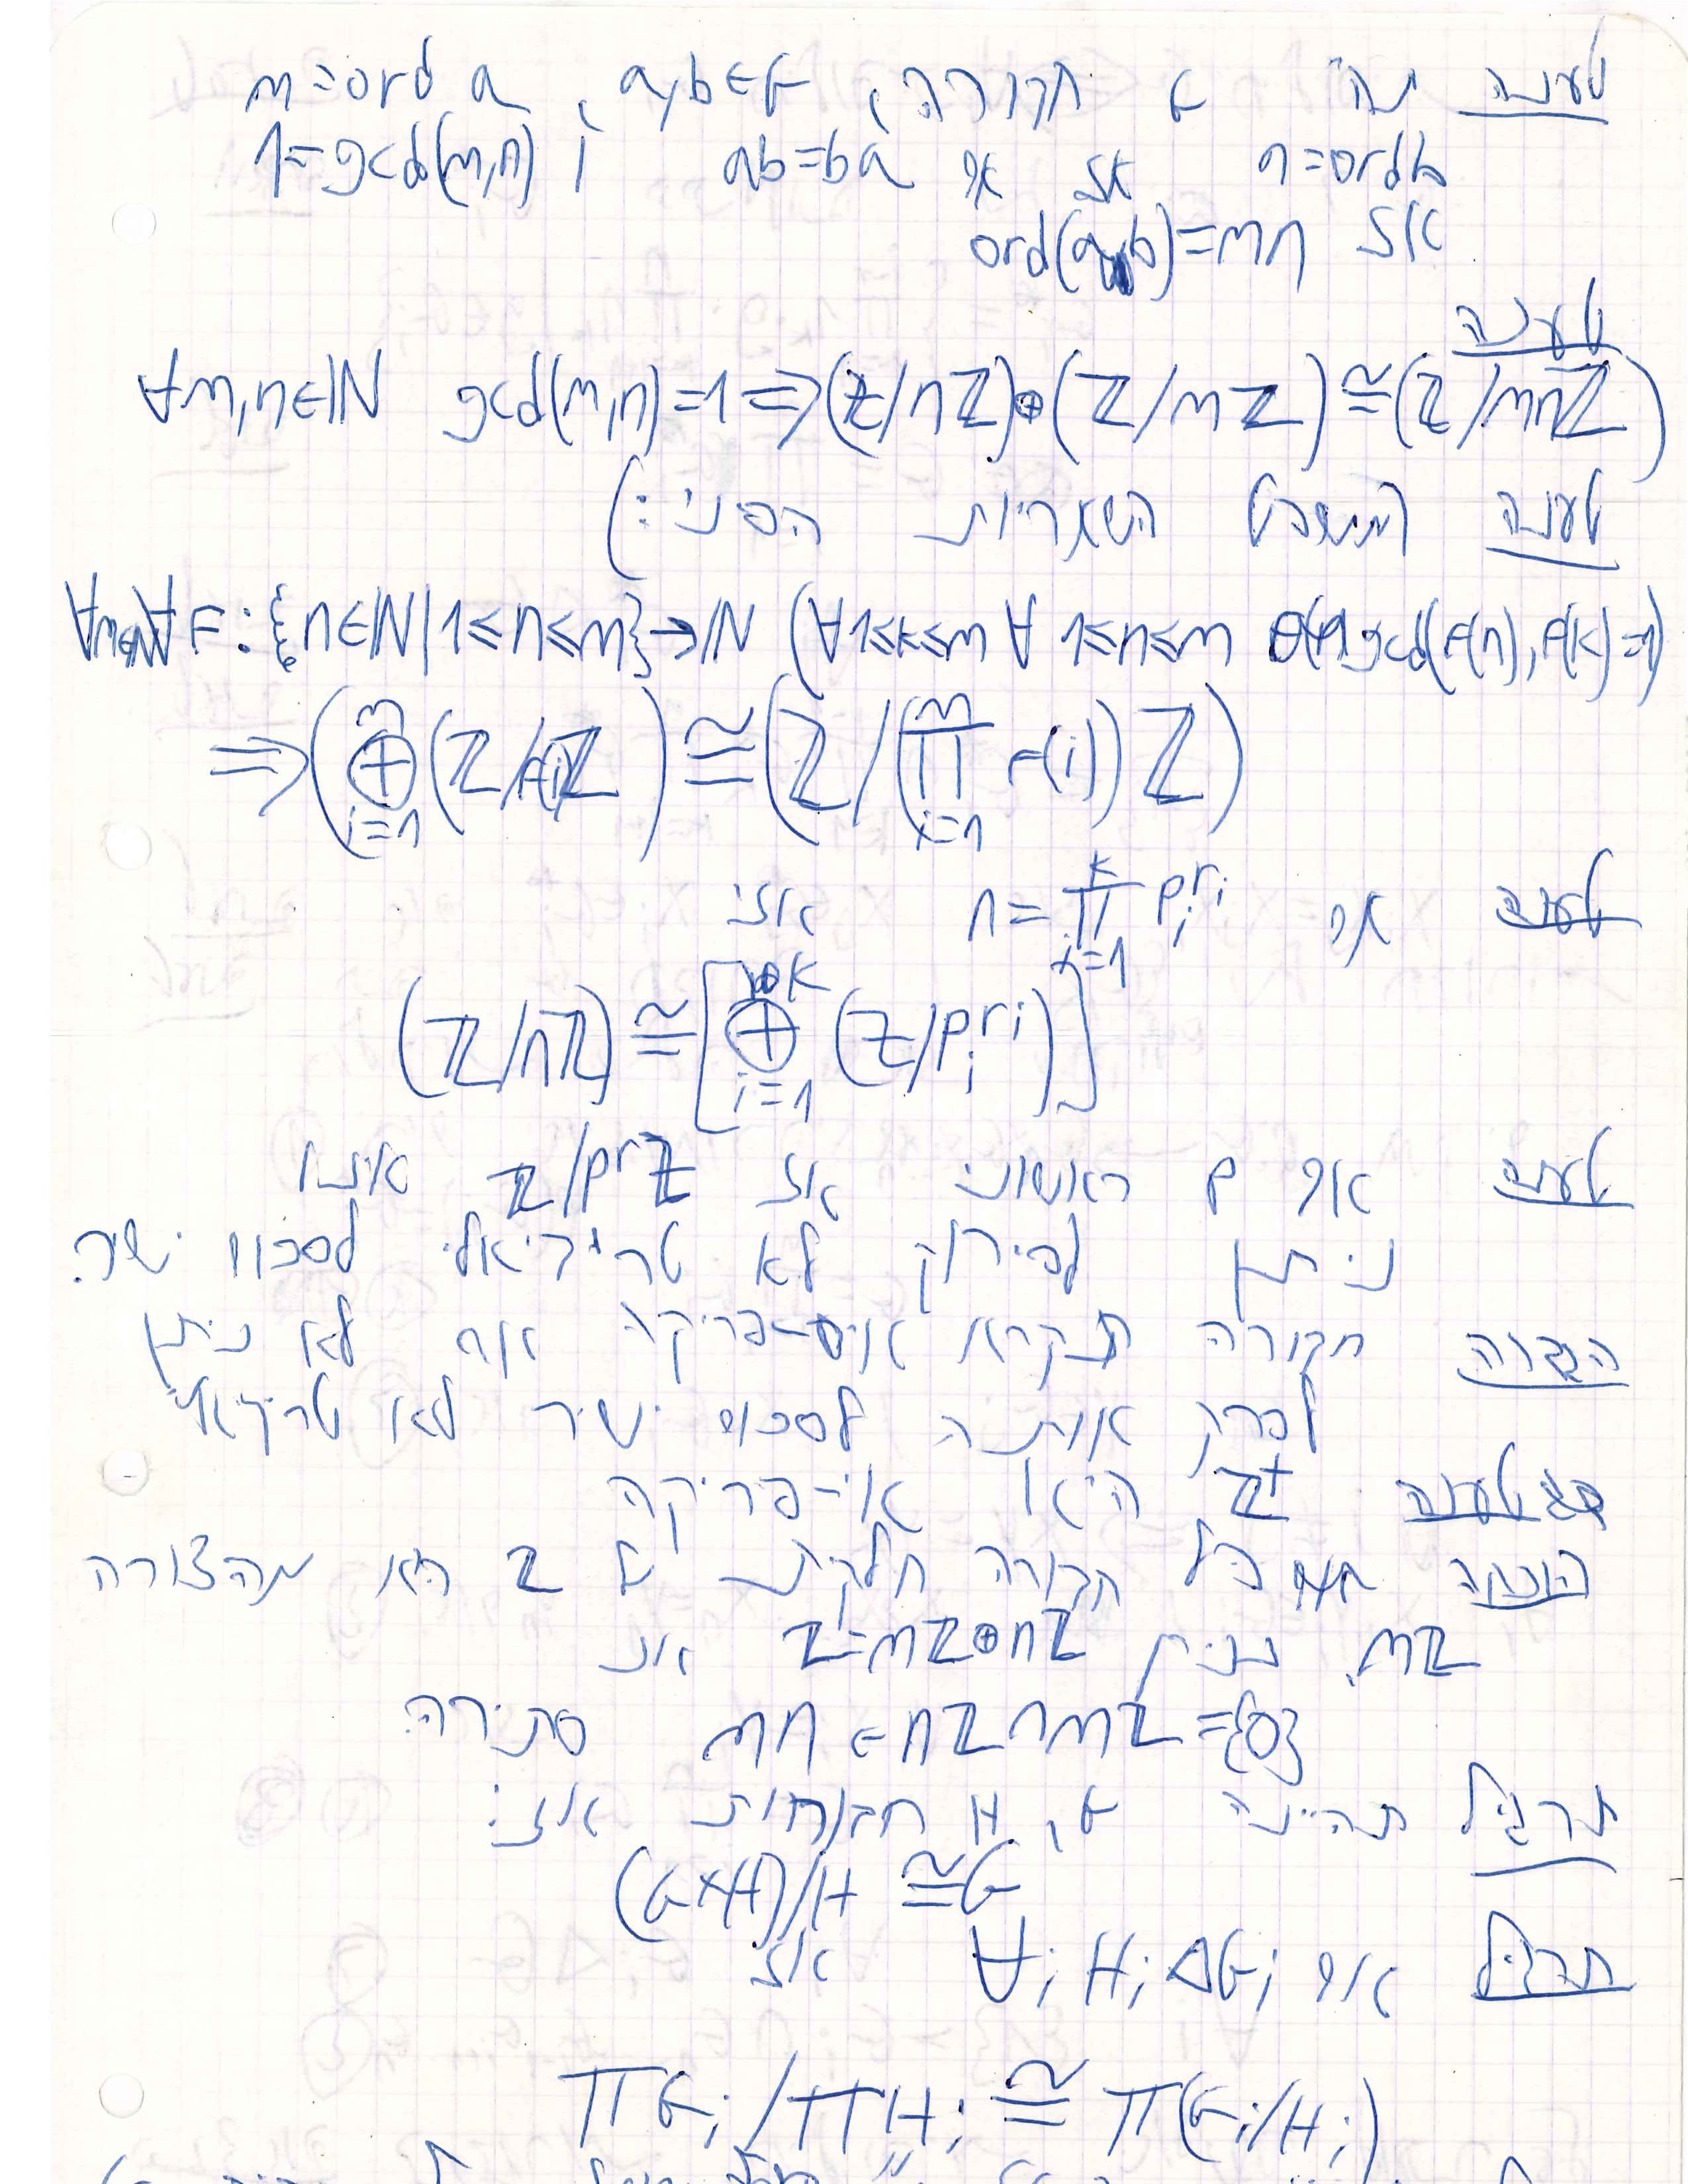 טענה תהי G חבורה, a,b∈G, m=ord a
n=ord b אז אם ab=ba ו 1=gcd(m,n)
אז ord(ab)=mn
טענה
∀m,n∈ℕ gcd(m,n)=1⇒(ℤ/nℤ)⊕(ℤ/mℤ)≅(ℤ/mnℤ)
טענה (משפט השאריות הסיני:)
∀m∈ℕ ∀F:{n∈ℕ|1≤n≤m}→ℕ (∀1≤k≤m ∀1≤n≤m gcd(F(n),F(k))=1)
⇒(⊕_{i=1}^{m}(ℤ/F(i)ℤ)≅(ℤ/(∏_{i=1}^{m} F(i))ℤ)
טענה אם n=∏_{i=1}^{k} p_i^{r_i} אזי
(ℤ/nℤ)≅[⊕_{i=1}^{k}(ℤ/p_i^{r_i})]
טענה אם p ראשוני אז ℤ/p^rℤ אינו
ניתן לפירוק לא טריויאלי לסכום ישיר.
הגדרה חבורה תקרא אי-פריקה אם לא ניתן
לפרק אותה לסכום ישיר לא טריויאלי
טענה ℤ⁺ היא אי-פריקה
הוכחה כל חבורה חלקית של ℤ היא מהצורה
mℤ. נניח ℤ=mℤ⊕nℤ אז
mn∈nℤ∩mℤ={0} סתירה.
תרגיל תהיינה G, H חבורות אזי:
(G×H)/H≅G
תרגיל אם ∀i H_i△G_i אז
∏G_i/∏H_i≅∏(G_i/H_i)